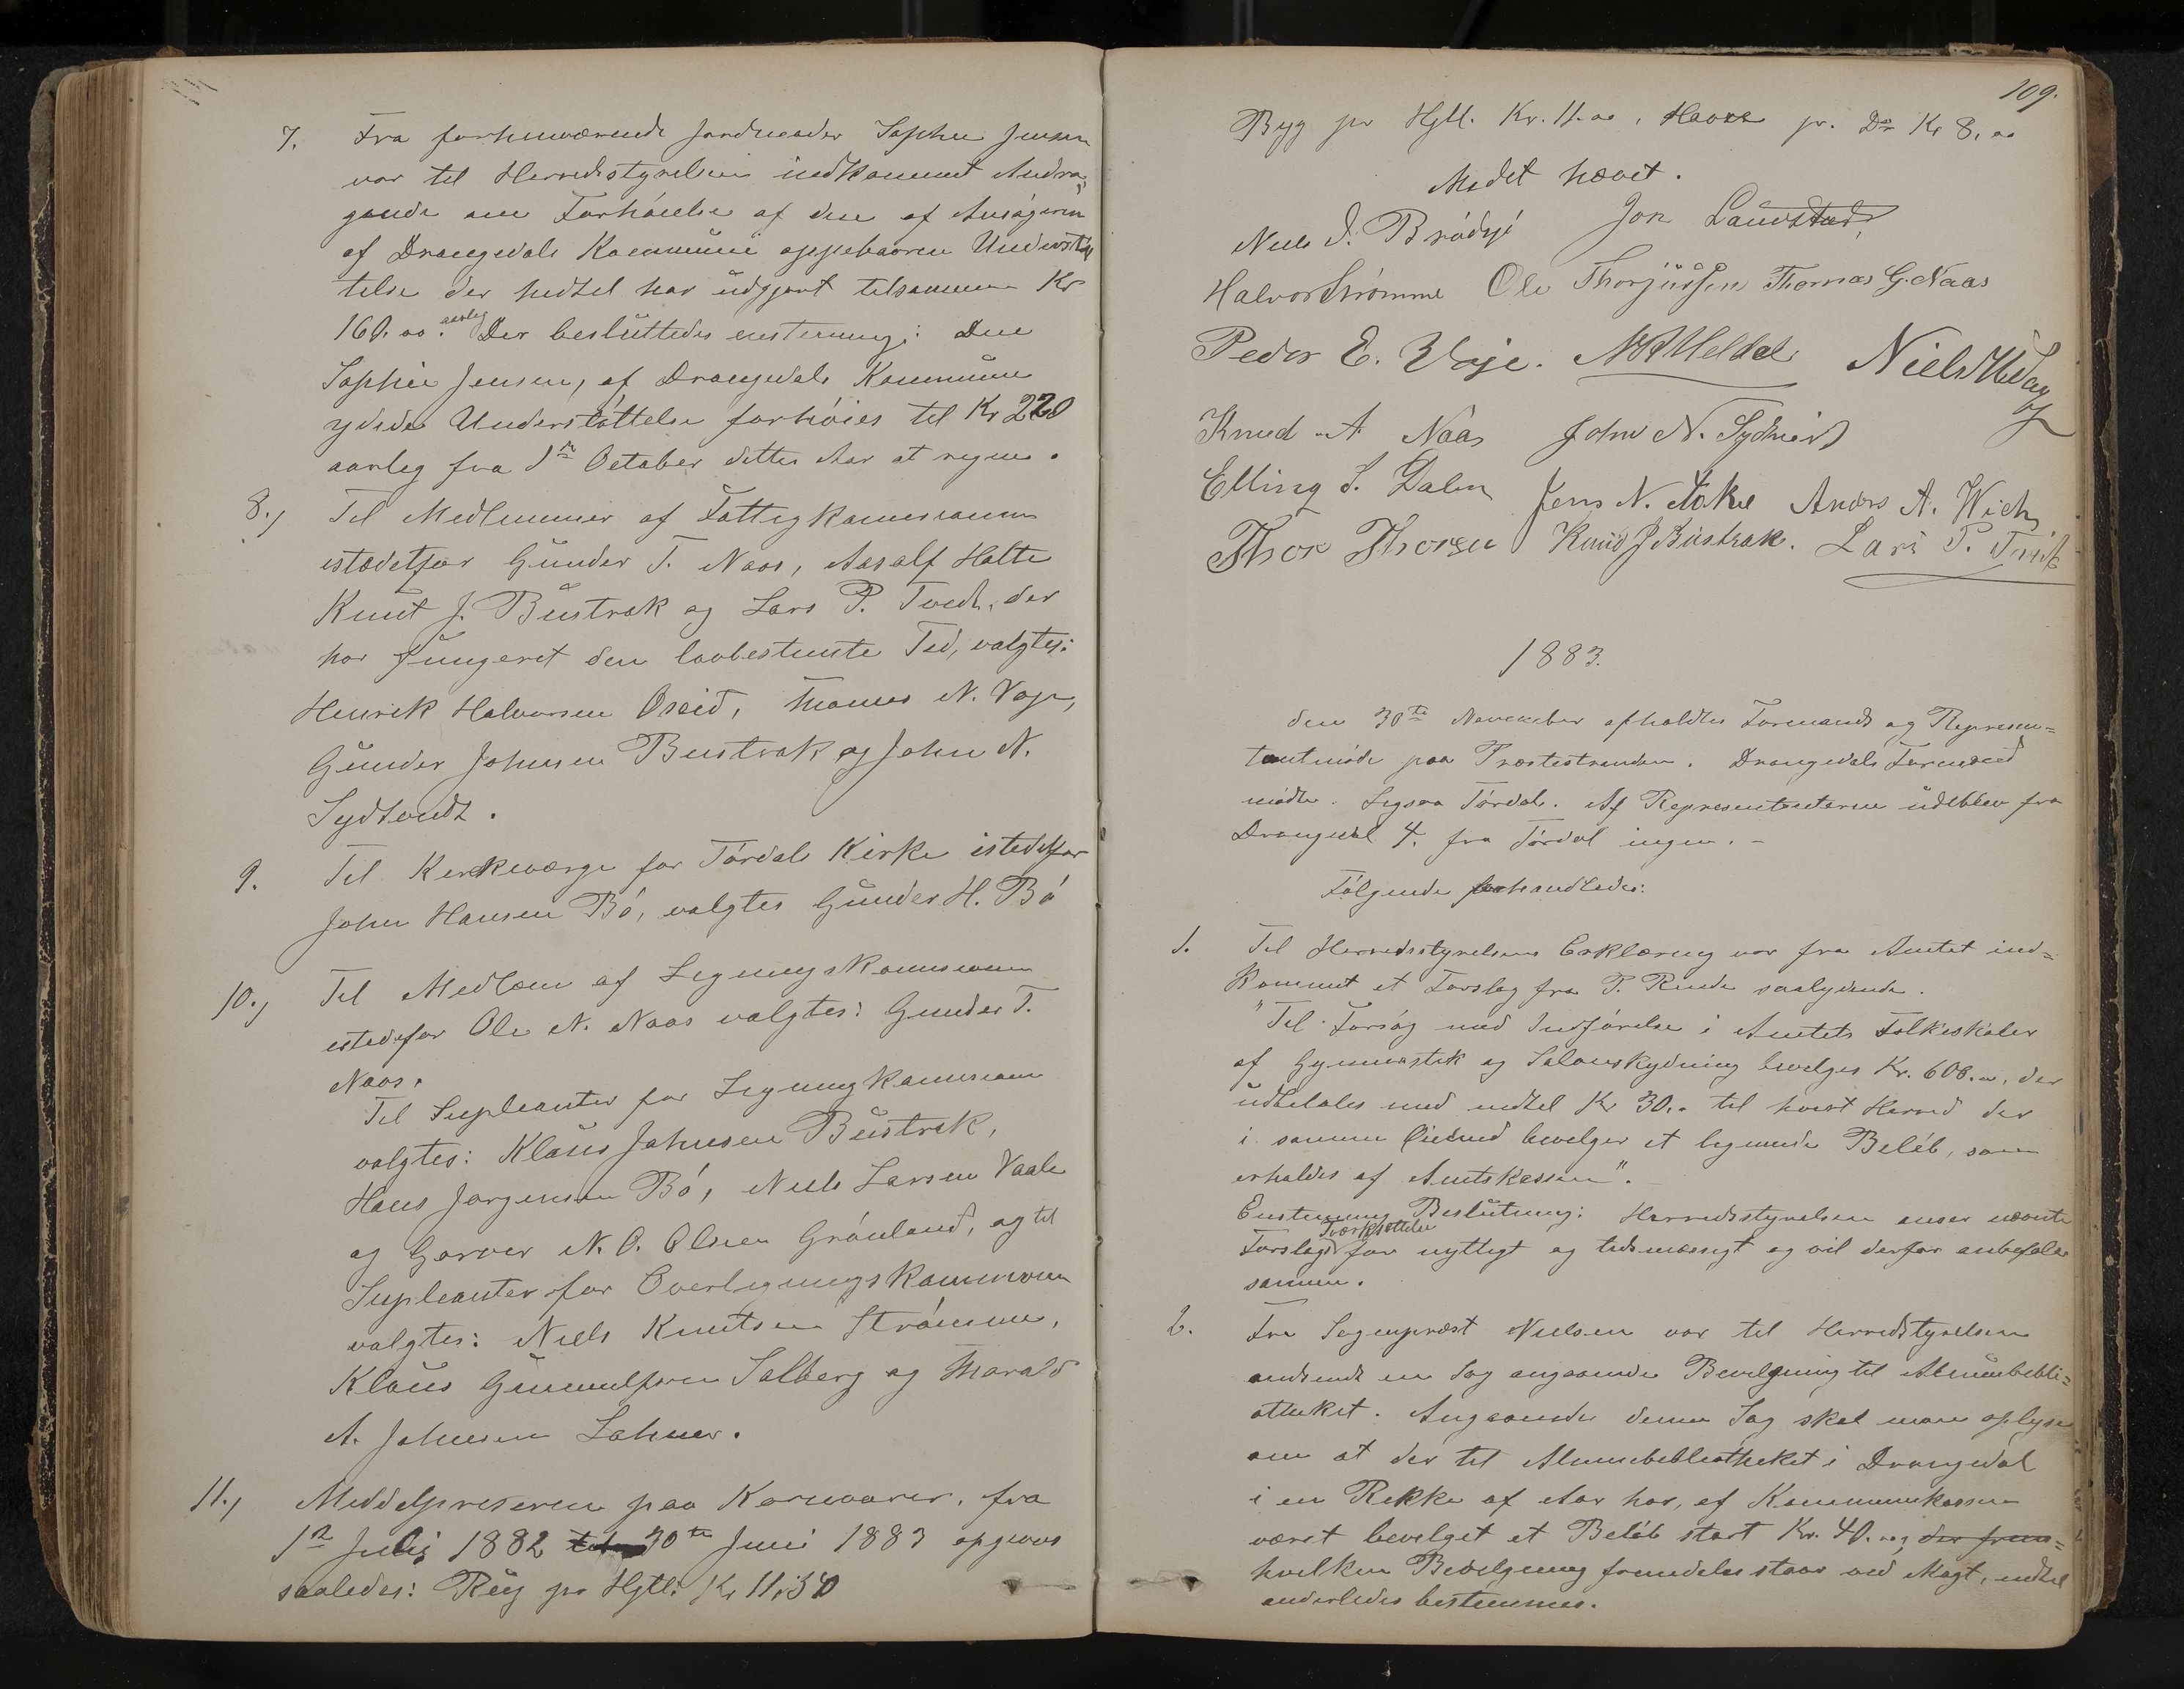 7. Fra forhenværende Jordmoder Sophie Jensen
var til Herredsstyrelsen indkommet Andra-
gende om Forhöielse af den af Ansögeren
af Drangedals Kommune oppebaaren Understöt
telse der hidtil har udgjort tilsammen Kr
160.00. aarlig Der besluttedes enstemmig: Den
Sophie Jensen, af Drangedals Kommune
ydede Understöttelse forhöies til Kr 220
aarlig fra 1ste October dette Aar at regne.
8., Til Medlemmer af Fattigkommissionen
istedetfor Gunder T. Naas, Aasalf Holte
Knut J. Bustrak og Lars P. Tvedt, der
har fungeret den lovbestemte Tid, valgtes:
Henrik Halvorsen Oseid, Thomas N. Voje,
Gunder Johnsen Bustrak og John N.
Sydtvedt.
9. Til Kirkeværge for Tördal Kirke istedetfor
John Hansen Bö, valgtes Gunder H. Bö
10., Til Medlem af Ligningskommissionen
istedetfor Ole N. Naas valgtes: Gunder T.
Naas.
Til Supleanter for Ligningkommission
valgtes: Klaus Johnsen Bustrak,
Hans Jørgensen Bö, Niels Larsen Vaale
og Garver N. O. Olsen Grönland, og til
Supleanter for Overligningskommission
valgtes: Niels Knutsen Strömme,
Klaus Gunnulfsen Solberg og Harald
A. Johnsen Lohner.
11., Middelpriserne paa Kornvarer, fra
1ste Juli 1882 til 30te Juni 1883 opgives
saaledes: Rug pr Hgtl: Kr 11,30
109.
Byg pr Hgtl. Kr. 11.00, Havre pr. Do Kr 8,00
Mödet hævet.
Niels J. Brödsjö Jon Landstad,
Halvor Strömme Ole Thorjussen Thomas G. Naas
Peder E. Voje. Niels
Knud A Naas John N. Sydtvedt
Elling S. Dalen Jens N. Anders A.
Thor Thorsen Knud J Bustrak. Lars P. Tvedt
1883.
den 30te November afholdtes Formands og Represen-
tantmöde paa Præstestranden. Drangedals Formænd
mödte. Ligsaa Tördal. Af Representanterne udeblev fra
Drangedal 4. fra Tördal ingen. -
Fölgende forhandledes:
1. Til Herredsstyrelsens Erklæring var fra Amtet ind-
kommet et Forslag fra P. Rinde saalydende.
"Til Forsög med Indförelse i Amtets Folkeskoler
af Gymnastik og Salonskydning bevilges Kr. 600.00, der
udbetales med indtil Kr 30,- til hvert Herred der
i samme Öiemed bevilger et lignende Belöb, som
erholdes af Amtskassen".
Enstemmig Beslutning: Herredsstyrelsen anser nævnte
Forslags Iværksættelse for nyttigt og tidsmæssigt og vil derfor anbefale
samme.
2. Fra Sognepræst Nielsen var til Herredstyrelsen
indsendt en Sag angaaende Bevilgning til Almuebibli-
otheket. Angaaende denne Sag skal man oplyse
om at der til Almuebibliotheket i Drangedal
i en Rekke af Aar har, af Kommunekassen
været bevilget et Belöb stort Kr. 40.00, der frem-
hvilken Bevilgning fremdeles staar ved Magt, indtil
anderledes bestemmes.